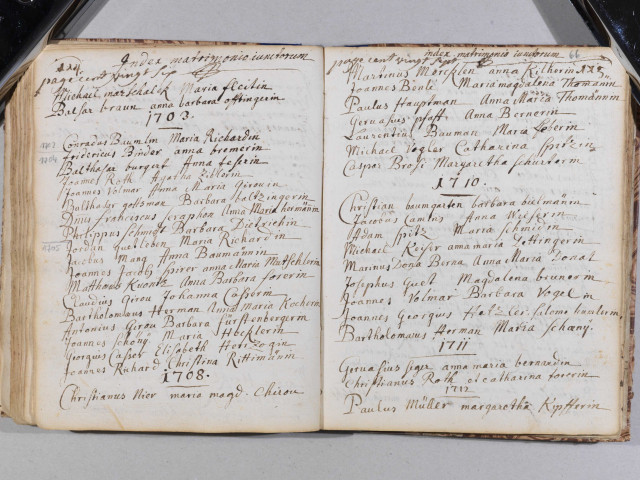 Index matrimonio iunctorum
page cent vingt sep
Michael marschalck Maria fleitin
Balsar braun anna barbara offingerin
1703.
Conradus Baumlin Maria Richardin
fridericus Binder anna fremerin
Balthasar burgert Anna feserin
Joannes Roth Agatha
Joannes Volmar Anna Maria Girouin
Balthasar goltzman Barbara holtzingerin
Dnus franciscus seraphon Anna Maria hermännin
Philippus Schmidt Barbara Dietrichin
Jordan Maria Richardin
Jacobus Mang Anna Baumännin
Joannes Jacob Spirer anna Maria Mutschlerin
Matthaus Kuontz Anna Barbara forerin
Claudius Girou Johanna Casperin
Bartholomaus Herman Anna maria Kocherin
Antonius Girou Barbara fürstenbergerin
Joannes Schönÿ Maria Hesslerin
Georgius Casper Elisabeth Hertzogin
Joannes Ruhard Christina Rittimänin
1708.
Christianus Nier maria magd. Chirou
index matrimonio iunctorum 66
page cent vingt sept
Martinus Morchlen anna Kilherin
Joannes Benté Maria magdalena Thomannin
Paulus Hauptman Anna Maria Thomännin
Gervasius pfaff Anna Bernerin
Laurentius Bauman Maria Loberin
Michael Vogler Catharina Spitzein
Caspar Brosi Margaretha schurterin
1710.
Christian baumgarten barbara bielmänin
Jacobus Cantus Anna Weiserin
Adam Spitz Maria Schmidin
Michael Keyser anamaria Gottingerin
Marinus Dona Berna Anna Maria Donat
Josephus Guet Magdalena brunerin
Joannes Volmar Barbara Vogelin
Joannes Georgius
Bartholomaus Herman Maria schöny
1711
Gervasius siger anna maria bernardin
Christianus Roth et catharina forerin
1712
Paulus Müller margaretha Kipfferin